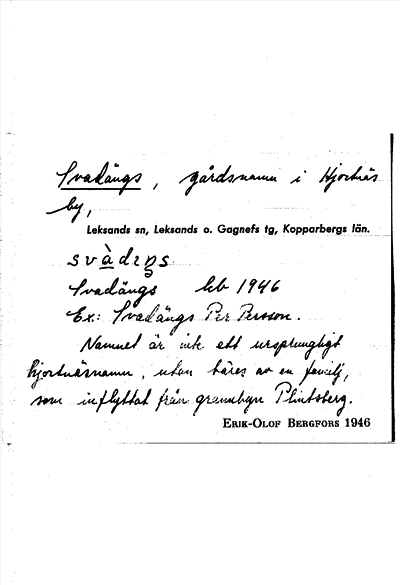 Svadängs, gårdsnamn i Hjortnäs
by,
Leksands sn, Leksands o. Gagnefs tg, Kopparbergs län.
svàdeŋs
Svadängs kb 1946
Ex: Svadängs Per Persson.
Namnet är icke ett ursprungligt
hjortnäsnamn, utan bäres av en familj,
som inflyttat från grannbyn Plintsberg.
ERIK-OLOF BERGFORS 1946